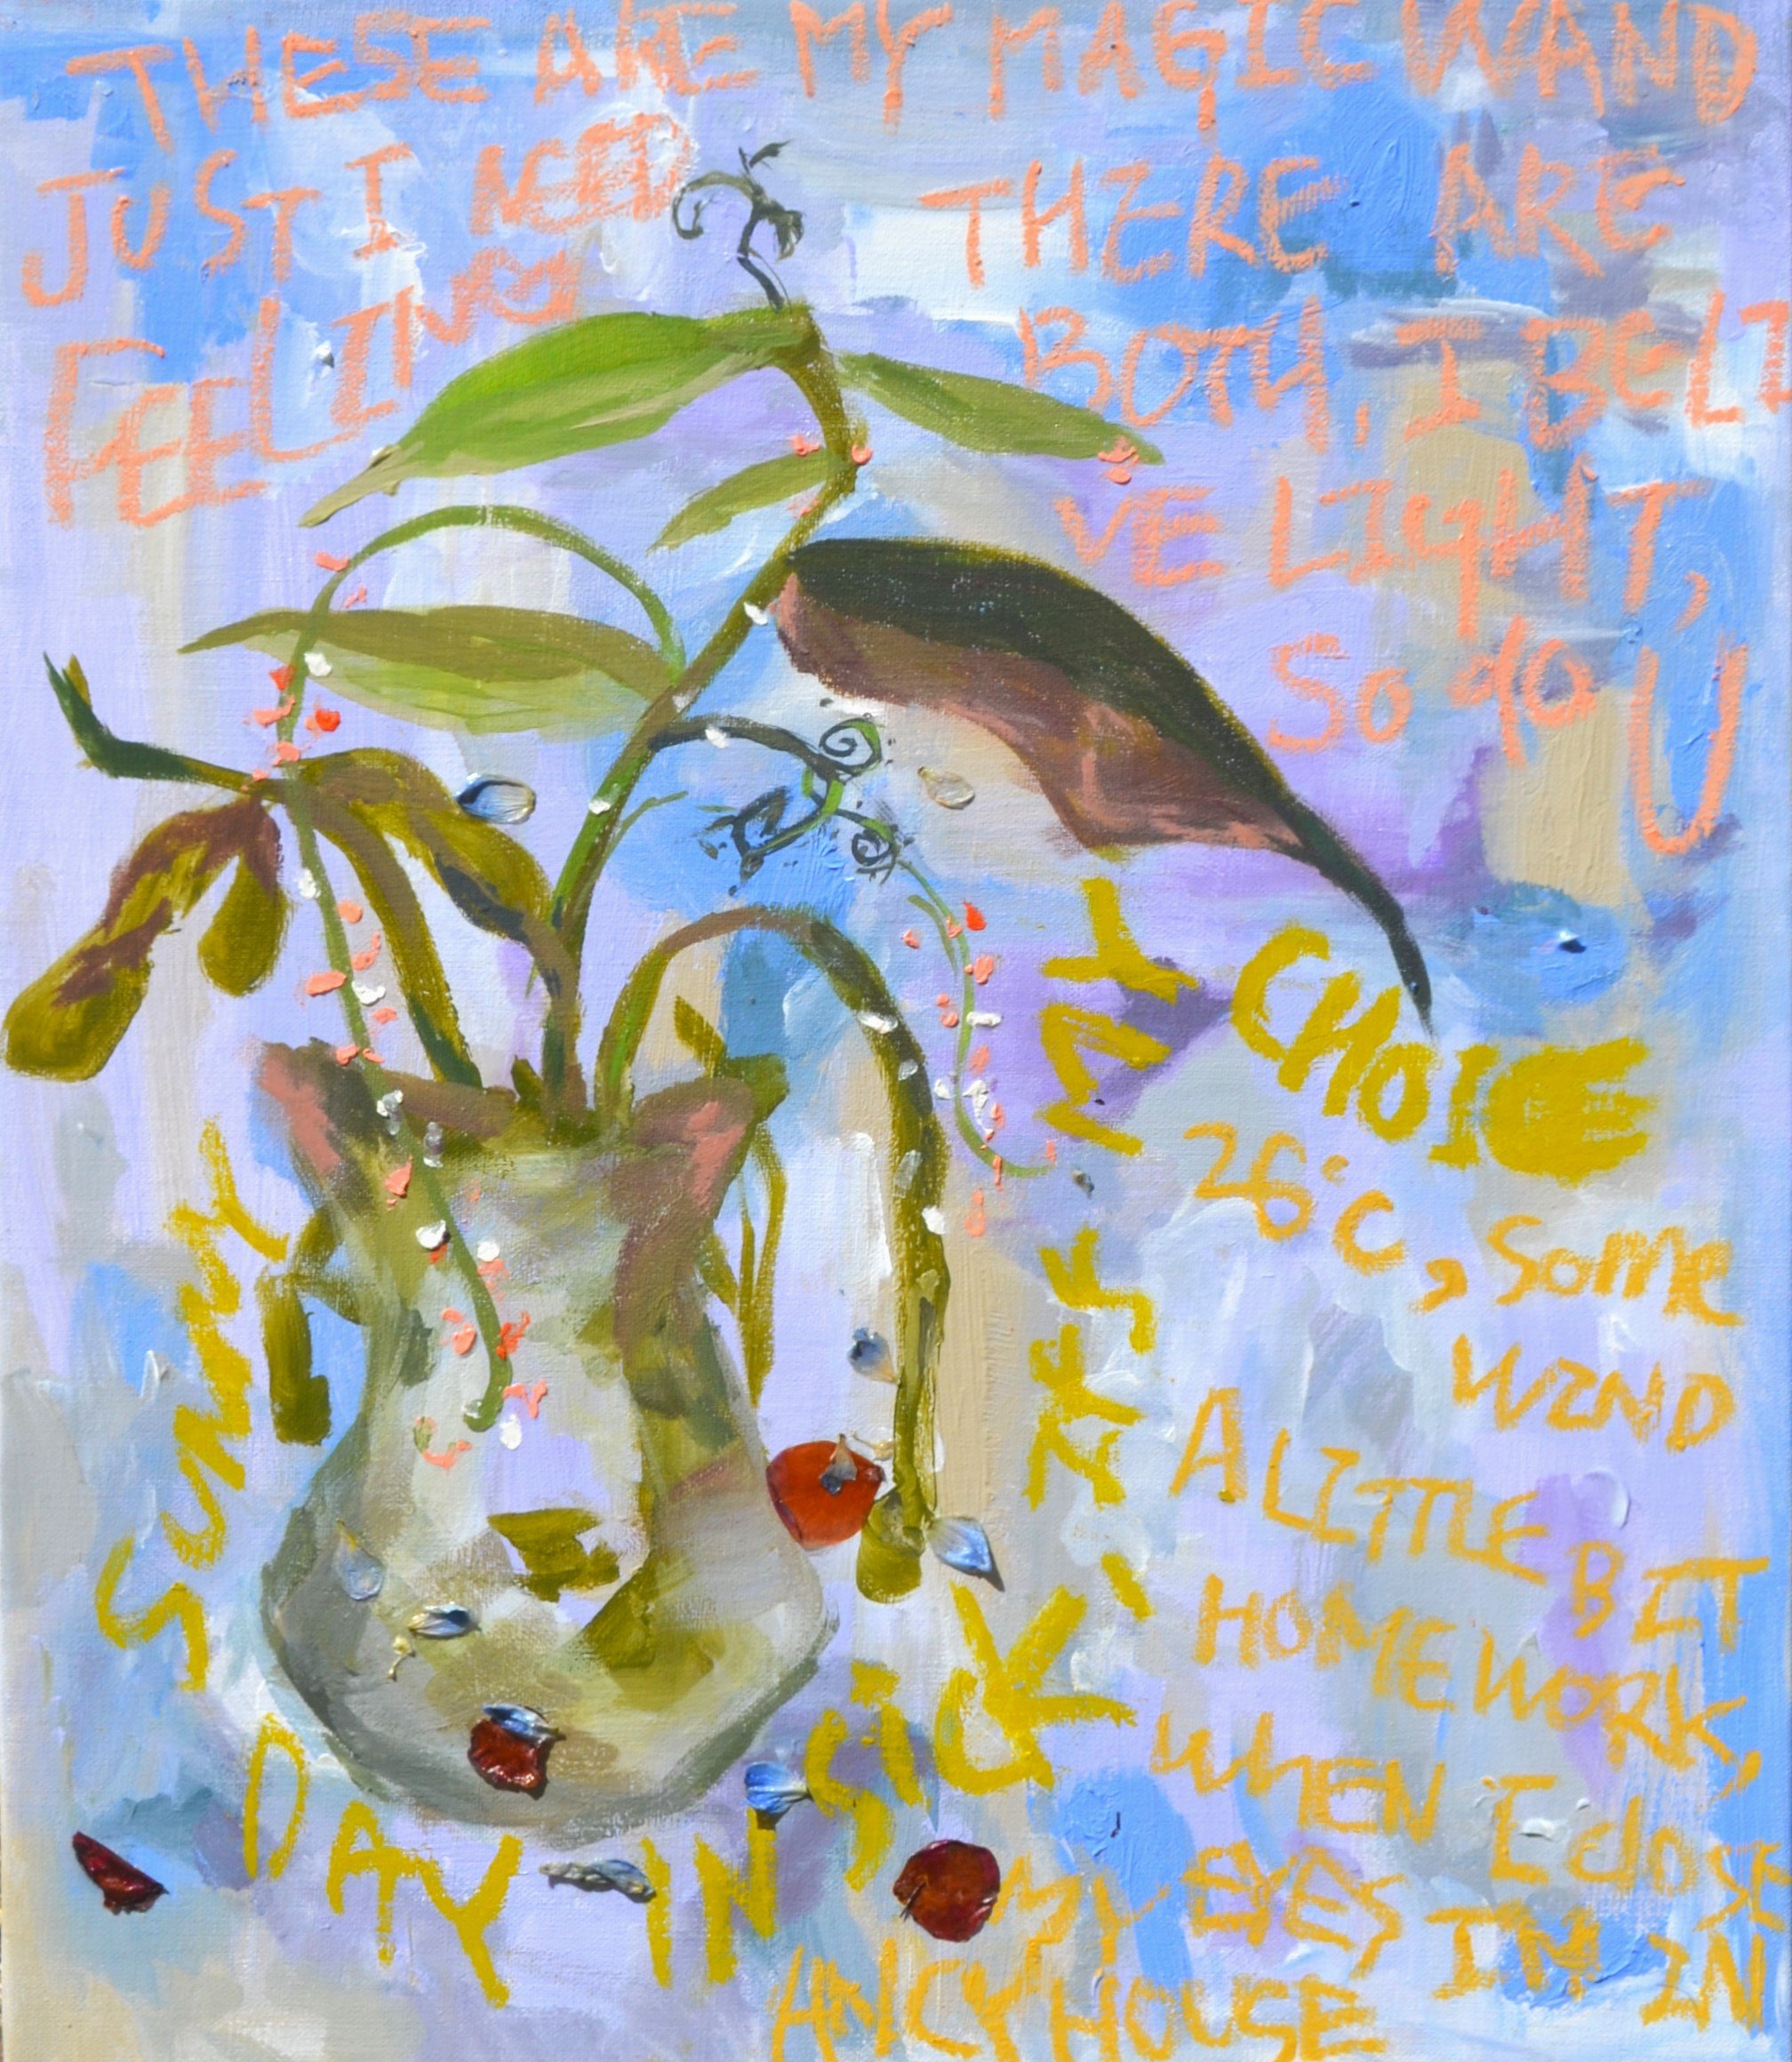 THESE ARE MY MAGIC WAND
JUST I NEED
FEELING
THERE ARE
BOTH, I BELI
VE LIGHT,
SO do U
SUNNY
DAY IN SICK
MY
CHOIE
26°C, SOME
WIND
A LITTLE BIT
HOMEWORK,
WHEN I CLOSE
MY EYES IM IN
ANCY HOUSE